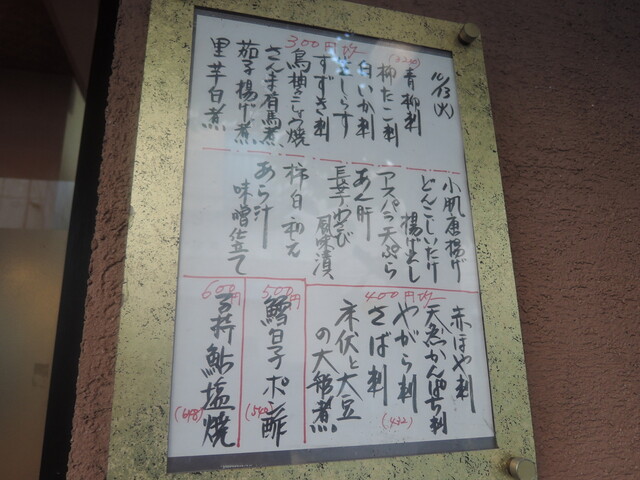 10/13(火)
300円均
(324)
青柳刺
柳たこ刺
白いか刺
生しらす
すずき刺
鳥柚子こしょう焼
さんま有馬煮
茄子揚げ煮
里芋白煮
小肌唐揚げ
どんこしいたけ
揚げ出し
アスパラ天ぷら
あん肝
長芋わさび
風味漬
柿白和え
あら汁
味噌仕立て
400円均
(432)
赤ほや刺
天然かんぱち刺
やがら刺
さば刺
床伏と大豆
の大船煮
500円
鱈白子ポン酢
(540)
600円
子持鮎塩焼
(648)